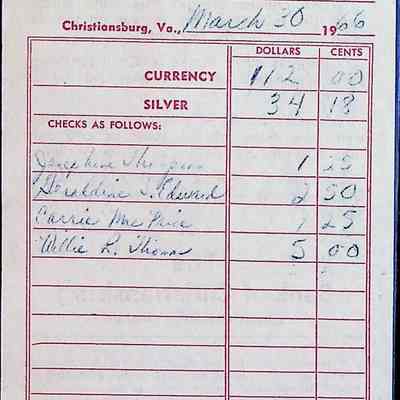 Christiansburg, Va., March 30 1966
DOLLARS CENTS
CURRENCY 112 00
SILVER 34 18
CHECKS AS FOLLOWS:
Josephine Thompson 1 25
Geraldine S. Edward 2 50
Carrie Mae Price 1 25
Willie R. Thomas 5 00